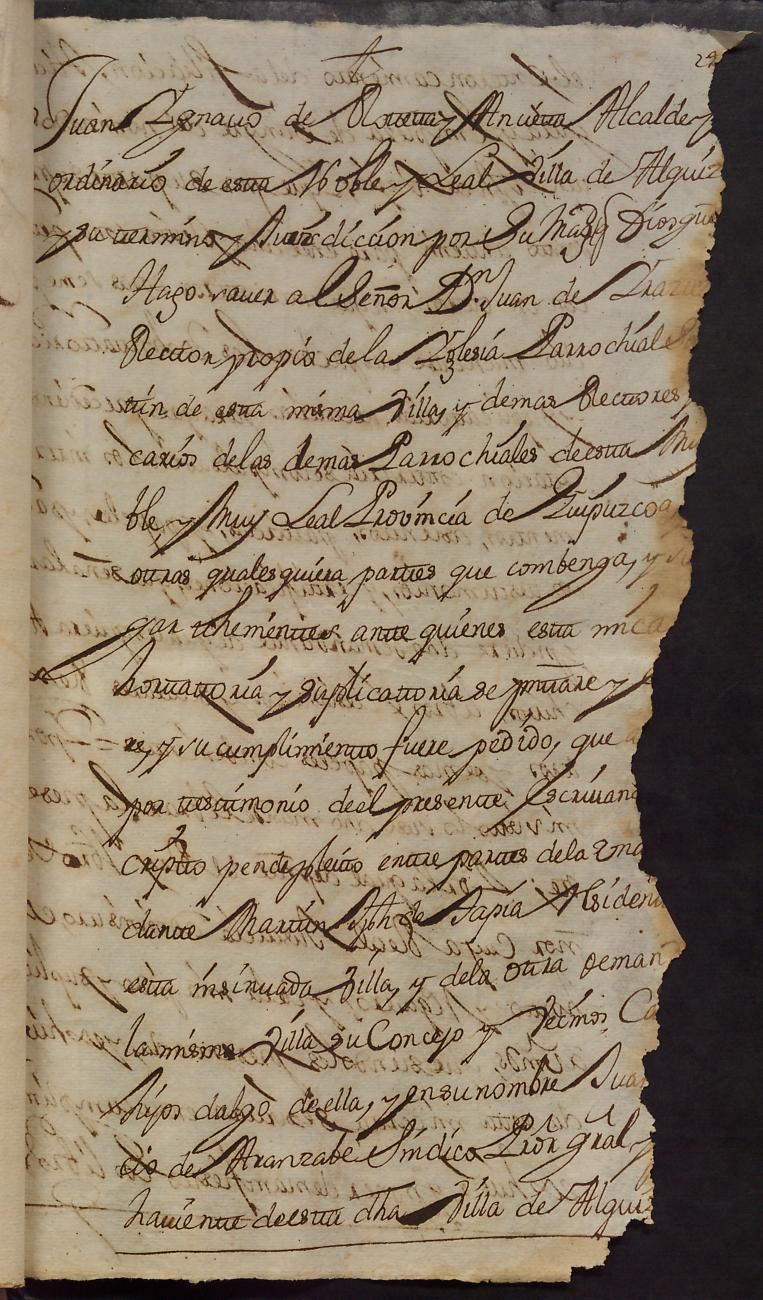 29
Juan Ygnacio de Alcalde y
ordinario de esta Noble y Leal Villa de Alquiz
y su termino y Jurisdiccion por Su Magd Dios gue
Hago saver al Señor Dn Juan de
Rector propio de la Yglesia Parrochial
tin de esta misma Villa, y demas Rectores,
carios de las demas Parrochiales de esta Mui
ble, y Muy Leal Provincia de Guipuzcoa
otras quales quiera partes que combenga, y
gar thenientes ante quienes esta mi ca
hortattoria y suplicattoria se pntare y
re, y su cumplimiento fuere pedido, que
por testimonio de el presente Escrivano
cripto pende pleito entre partes de la una
dante Martin de Tapia Residen
esta insinuada Villa, y dela otra deman
la misma Villa su Concejo y Vecinos Ca
hijos dalgo de ella, y en su nombre Juan
cio de Aranzabe Sindico Pror gral y
haviente de esta dha Villa de Alquiz